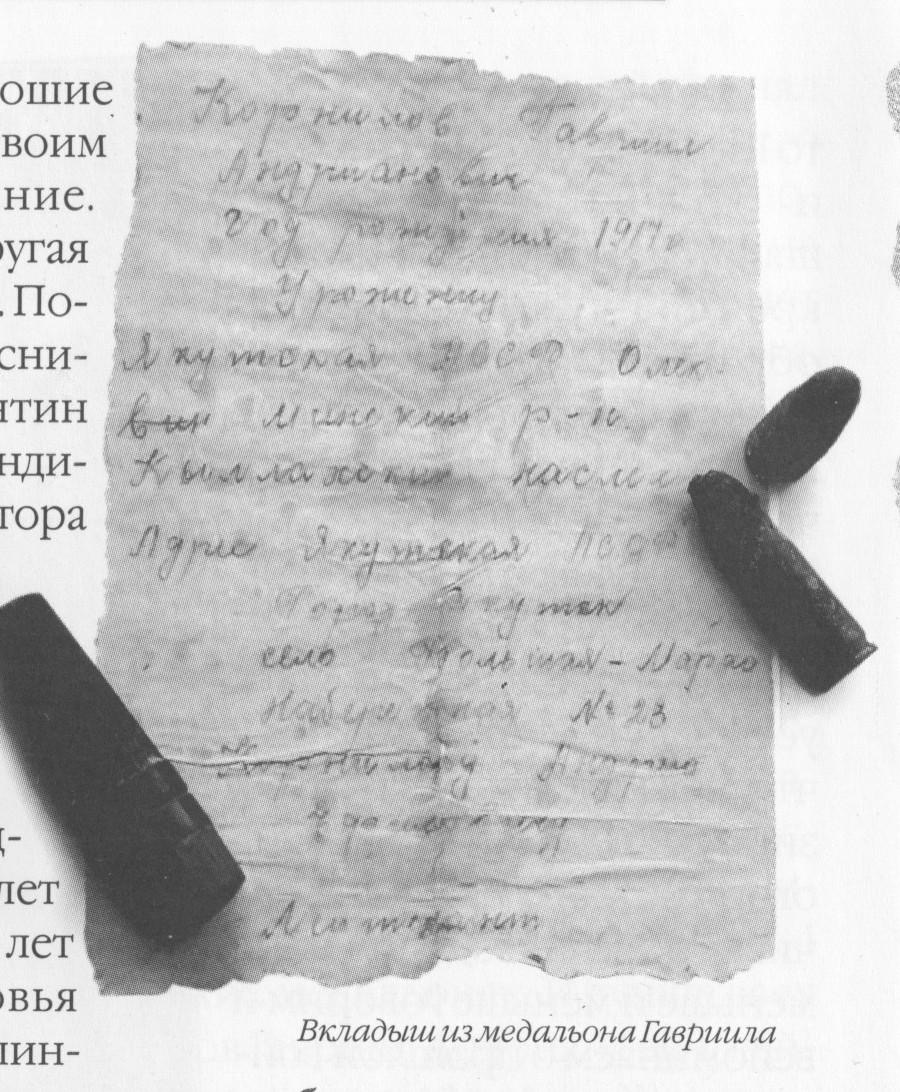 ошие
воим
ние.
ругая
. По-
сни-
нтин
нди-
тора
лет
лет
овья
Корнилов Гавриил
Андрианович
Год рождения 1917г
Уроженец
Якутская АССР Олек-
вин минский р-н.
Кыллахский наслег
Адрес Якутская АССР
Город Якутск
село Большая-Марха
Набережная № 23
Корнилову Андриано
Лейтенант
Вкладыш из медальона Гавриила